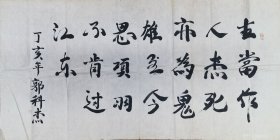 生當作
人杰死
亦為鬼
雄至今
思項羽
不肯过
江东
丁亥年郭科杰